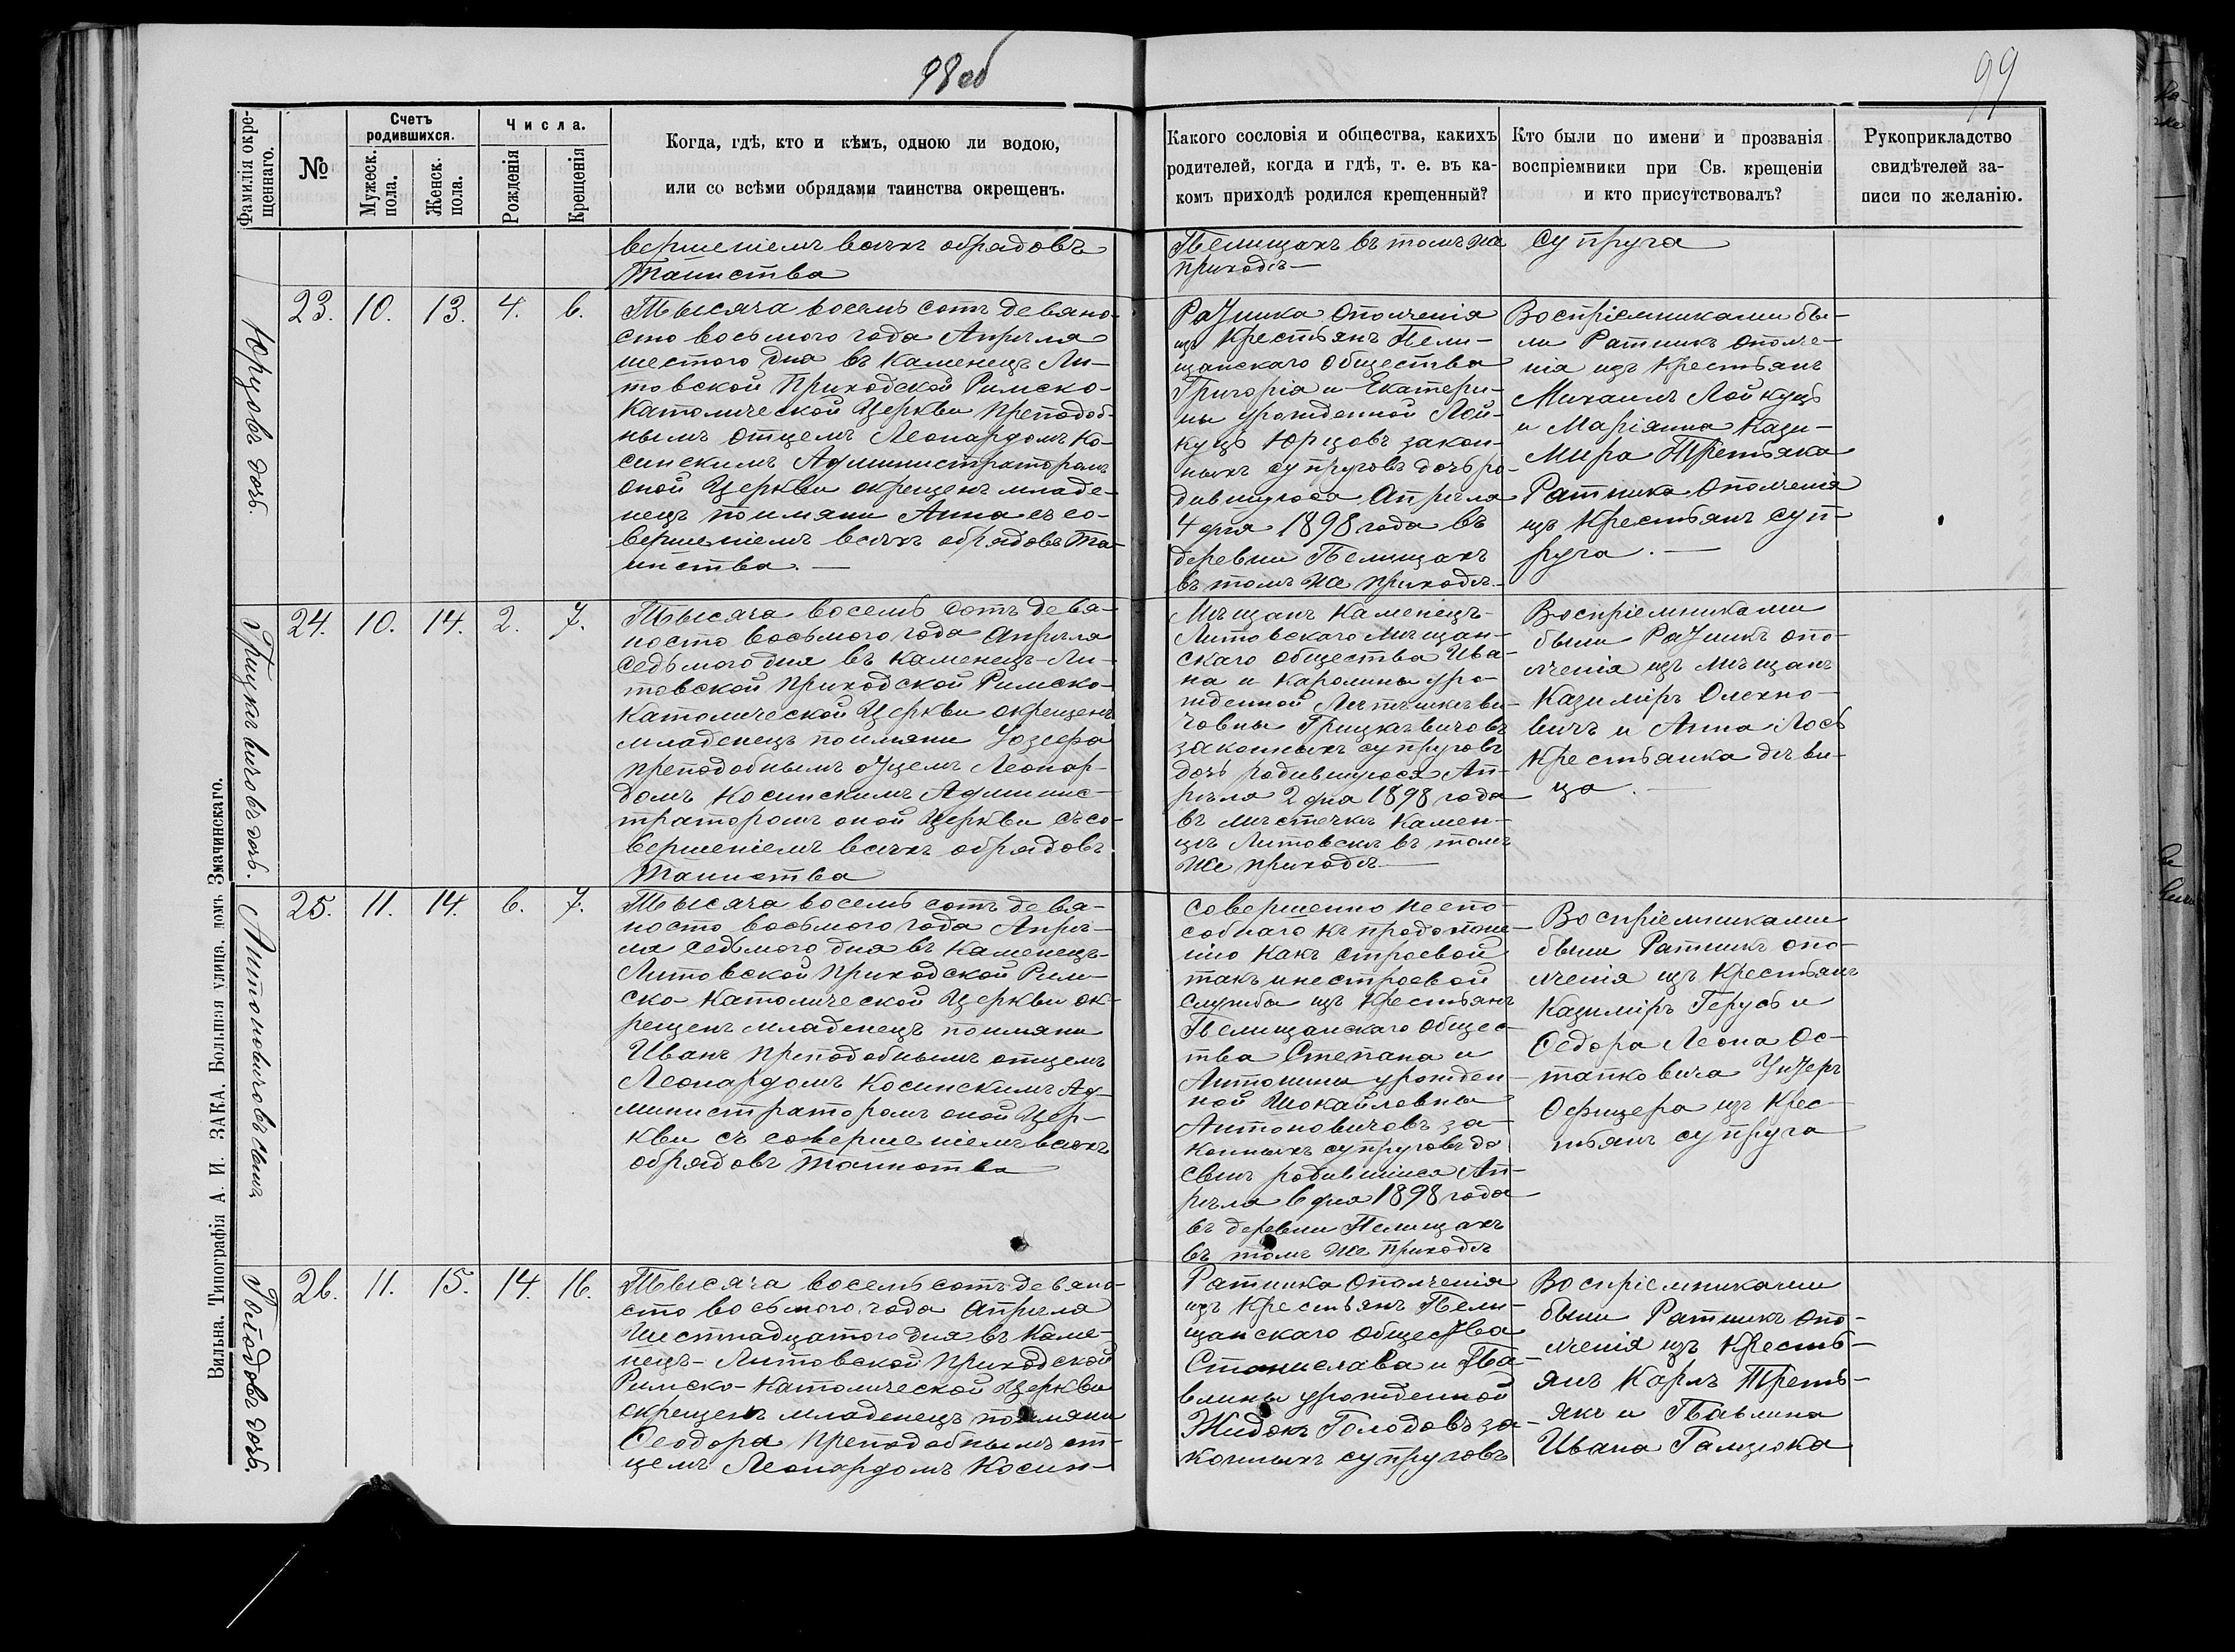 98 об
99
Фамилія окрещеннаго.
№
Счетъ родившихся.
Мужеск. пола.
Женск. пола.
Числа.
Рожденія
Крещенія
Когда, гдѣ, кто и кѣмъ, одною ли водою,
или со всѣми обрядами таинства окрещенъ.
Какого сословія и общества, какихъ
родителей, когда и гдѣ, т. е. въ ка-
комъ приходѣ родился крещенный?
Кто были по имени и прозванія
воспріемники при Св. крещеніи
и кто присутствовалъ?
Рукоприкладство
свидѣтелей за-
писи по желанію.
вершеніемъ всѣхъ обрядовъ
Таинства
Пелищахъ въ томъ же
приходѣ—
супруга
Юрцовъ дочь.
23. 10. 13. 4. 6.
Тысяча восемь сотъ девяно-
сто восьмого года Апрѣля
шестого дня въ Каменецъ Ли-
товской Приходской Римско-
Католической Церкви преподоб-
нымъ отцемъ Леонардомъ Ко-
синскимъ Администраторомъ
оной Церкви окрещенъ младе-
нецъ поимяни Анна съ со-
вершеніемъ всѣхъ обрядовъ Та-
инства.—
Ратника Ополченія
изъ Крестьянъ Пели-
щанскаго Общества
Григорія и Екатери-
ны урожденной Лой-
куцъ Юрцовъ закон-
ныхъ супруговъ дочь ро-
дившуюся Апрѣля
4 дня 1898 года въ
деревни Пелищахъ
въ томъ же приходѣ.—
Воспріемниками бы-
ли Ратникъ ополче-
нія изъ Крестьянъ
Михаилъ Лойкуцъ
и Маріянна Кази-
мира Третьяка
Ратника Ополченія
изъ Крестьянъ суп-
руга.—
Грицкѣвичовъ дочь.
24. 10. 14. 2. 7.
Тысяча восемь сотъ девя-
носто восьмого года Апрѣля
седьмого дня въ Каменецъ-Ли-
товской Приходской Римско-
Католической Церкви окрещенъ
младенецъ поимяни Іозефа
преподобнымъ отцемъ Леонар-
домъ Косинскимъ Админис-
траторомъ оной Церкви съ со-
вершеніемъ всѣхъ обрядовъ
Таинства
Мѣщанъ Каменецъ-
Литовскаго Мѣщан-
скаго общества Ива-
на и Каролины уро-
жденной
човны Грицкѣвичовъ
законныхъ супруговъ
дочь родившуюся Ап-
рѣля 2 дня 1898 года
въ мѣстечкѣ Камен-
цѣ Литовскѣ въ томъ
же приходѣ—
Воспріемниками
были Ратникъ опо-
лченія изъ мѣщанъ
Казиміръ Олехно-
вичъ и Анна Лось
Крестьянка дѣви-
ца.—
Антоновичовъ сынъ
25. 11. 14. 6. 7.
Тысяча восемь сотъ девя-
носто восьмого года Апрѣ-
ля седьмого дня въ Каменецъ-
Литовской Приходской Рим-
ско-Католической Церкви ок-
рещенъ младенецъ поимяни
Иванъ преподобнымъ отцемъ
Леонардомъ Косинскимъ Ад-
министраторомъ оной Цер-
кви съ совершеніемъ всѣхъ
обрядовъ Таинства
Совершенно неспо-
собнаго къ продолже-
нію какъ строевой
такъ и нестроевой
службы изъ Крестьянъ
Пелищанскаго Общес-
тва Степана и
Антонины урожден-
ной Шокайловны
Антоновичовъ за-
конныхъ супруговъ
сынъ родившійся Ап-
рѣля 6 дня 1898 года
въ деревни Пелищахъ
въ томъ же приходѣ
Воспріемниками
были Ратникъ опо-
лченія изъ Крестьянъ
Казиміръ Герусь и
Ѳедора Леона Ос-
тапковича Унтеръ
Офицера изъ Крес-
тьянъ супруга
Голодовъ дочь.
26. 11. 15. 14. 16.
Тысяча восемь сотъ девяно-
сто восьмого года Апрѣля
Шестнадцатого дня въ Каме-
нецъ-Литовской Приходской
Римско-Католической Церкви
окрещенъ младенецъ поимяни
Ѳеодора преподобнымъ от-
цемъ Леонардомъ Косин-
Ратника Ополченія
изъ Крестьянъ Пели-
щанскаго Общества
Станислава и Па-
влины урожденной
Жидокъ Голодовъ за-
конныхъ супруговъ
Воспріемниками
были Ратникъ Опо-
лченія изъ Кресть-
янъ Карлъ Треть-
якъ и Павлина
Ивана Гамзюка
Вильна. Типографія А. И. ЗАКА. Большая улица, домъ Змачинскаго.